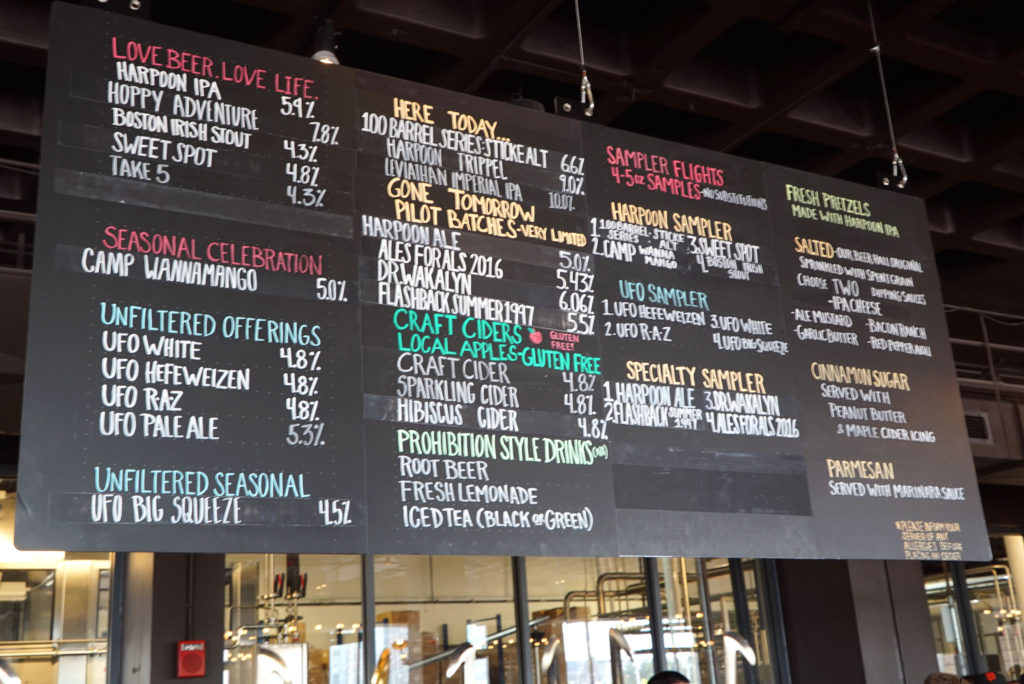 LOVE BEER. LOVE LIFE.
HARPOON IPA 5.9%
HOPPY ADVENTURE 7.8%
BOSTON IRISH STOUT 4.3%
SWEET SPOT 4.8%
TAKE 5 4.3%
SEASONAL CELEBRATION
CAMP WANNAMANGO 5.0%
UNFILTERED OFFERINGS
UFO WHITE 4.8%
UFO HEFEWEIZEN 4.8%
UFO RAZ 4.8%
UFO PALE ALE 5.3%
UNFILTERED SEASONAL
UFO BIG SQUEEZE 4.5%
HERE TODAY...
100 BARREL SERIES: STICKE ALT 6.6%
HARPOON TRIPPEL 9.0%
LEVIATHAN IMPERIAL IPA 10.0%
GONE TOMORROW
PILOT BATCHES-VERY LIMITED
HARPOON ALE 5.0%
ALES FOR ALS 2016 5.43%
DR.WAKALYN 6.06%
FLASHBACK SUMMER 1997 5.5%
CRAFT CIDERS GLUTEN FREE!!
LOCAL APPLES-GLUTEN FREE
CRAFT CIDER 4.8%
SPARKLING CIDER 4.8%
HIBISCUS CIDER 4.8%
PROHIBITION STYLE DRINKS
ROOT BEER
FRESH LEMONADE
ICED TEA (BLACK OR GREEN)
SAMPLER FLIGHTS
4-5oz SAMPLES-NO SUBSTITUTIONS
HARPOON SAMPLER
1. 100 BARREL SERIES - STICKE ALT 3. SWEET SPOT
2. CAMP WANNA MANGO 4. BOSTON IRISH STOUT
UFO SAMPLER
1. UFO HEFEWEIZEN 3. UFO WHITE
2. UFO RAZ 4. UFO BIG SQUEEZE
SPECIALTY SAMPLER
1. HARPOON ALE 3. DR.WAKALYN
2. FLASHBACK SUMMER 1997 4. ALES FOR ALS 2016
FRESH PRETZELS
MADE WITH HARPOON IPA
SALTED-OUR BEER HALL ORIGINAL
SPRINKLED WITH SPENT GRAIN
CHOOSE TWO DIPPING SAUCES
-IPA CHEESE
-ALE MUSTARD -BACON RANCH
-GARLIC BUTTER -RED PEPPER AIOLI
CINNAMON SUGAR
SERVED WITH
PEANUT BUTTER
& MAPLE CIDER ICING
PARMESAN
SERVED WITH MARINARA SAUCE
*PLEASE INFORM YOUR
SERVER OF ANY
ALLERGIES BEFORE
PLACING AN ORDER